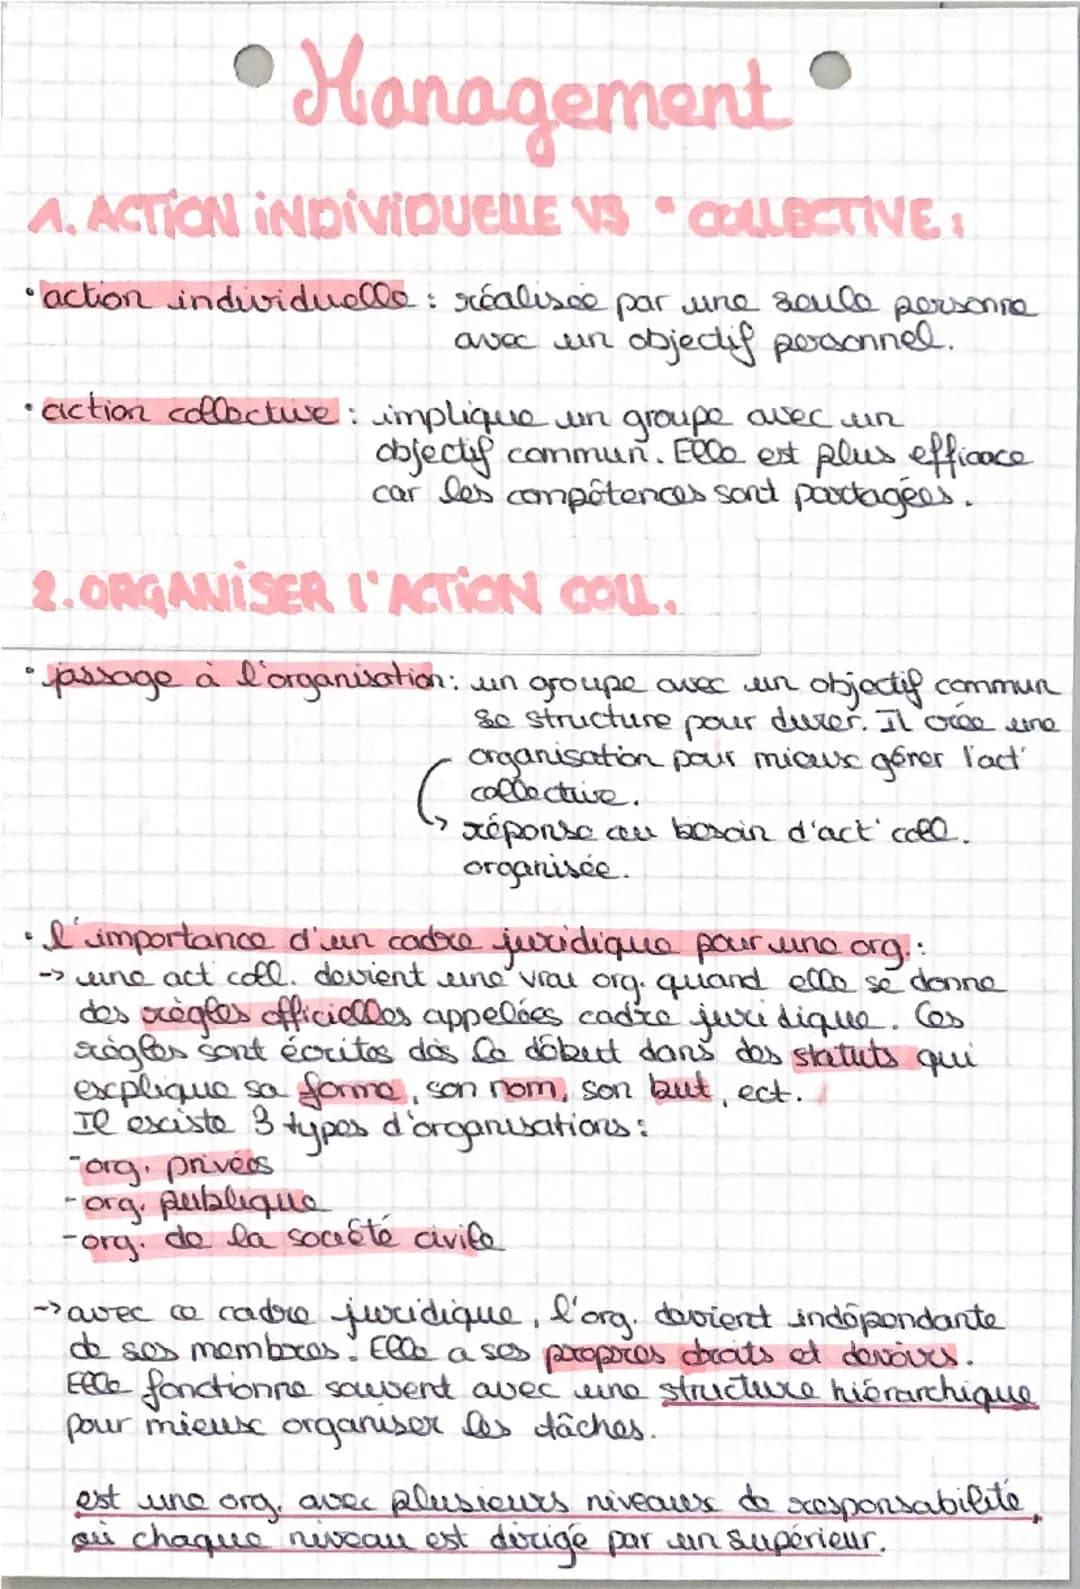 Management
1. ACTION INDIVIDUELLE VS " COLLECTIVE :
• action individuelle : réalisée par une seule personne
avec un objectif personnel.
• action collective : implique un groupe avec un
objectif commun. Elle est plus efficace
car les compétences sont partagées.
2. ORGANISER L'ACTION COLL.
• passage à l'organisation : un groupe avec un objectif commun
se structure pour durer. Il crée une
organisation pour mieux gérer l'act°
collective.
↳ réponse au besoin d'act° coll.
organisée.
• l'importance d'un cadre juridique pour une org. :
-> une act coll. devient une vrai org. quand elle se donne
des règles officielles appelées cadre juridique. Ces
règles sont écrites dès le début dans des statuts qui
explique sa forme, son nom, son but, ect.
Il existe 3 types d'organisations :
- org. privées
- org. publique
- org. de la société civile
-> avec ce cadre juridique, l'org. devient indépendante
de ses membres. Elle a ses propres droits et devoirs.
Elle fonctionne souvent avec une structure hiérarchique
pour mieux organiser les tâches.
est une org. avec plusieurs niveaux de responsabilité,
où chaque niveau est dirigé par un supérieur.